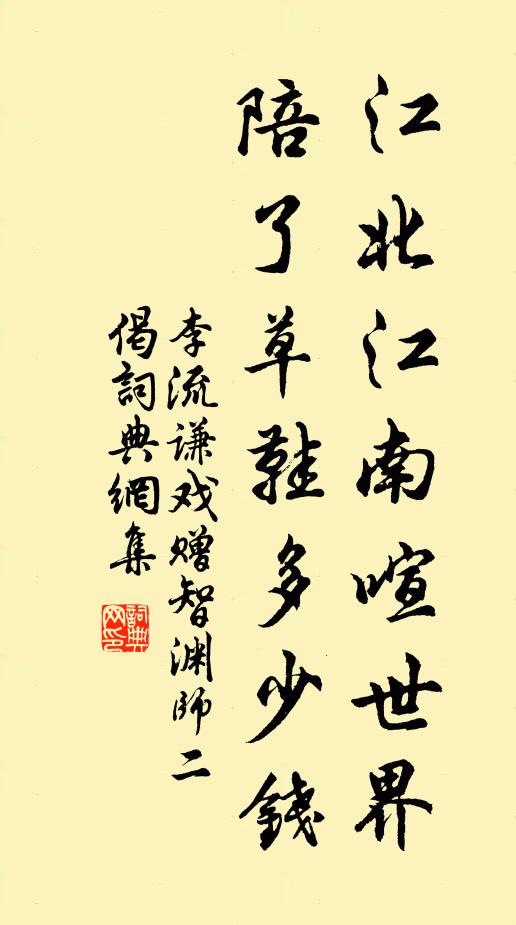 江北江南喧世界
陪了草鞋多少錢
李流谦戏赠智渊師二
偈詞典網集
詞典
网印